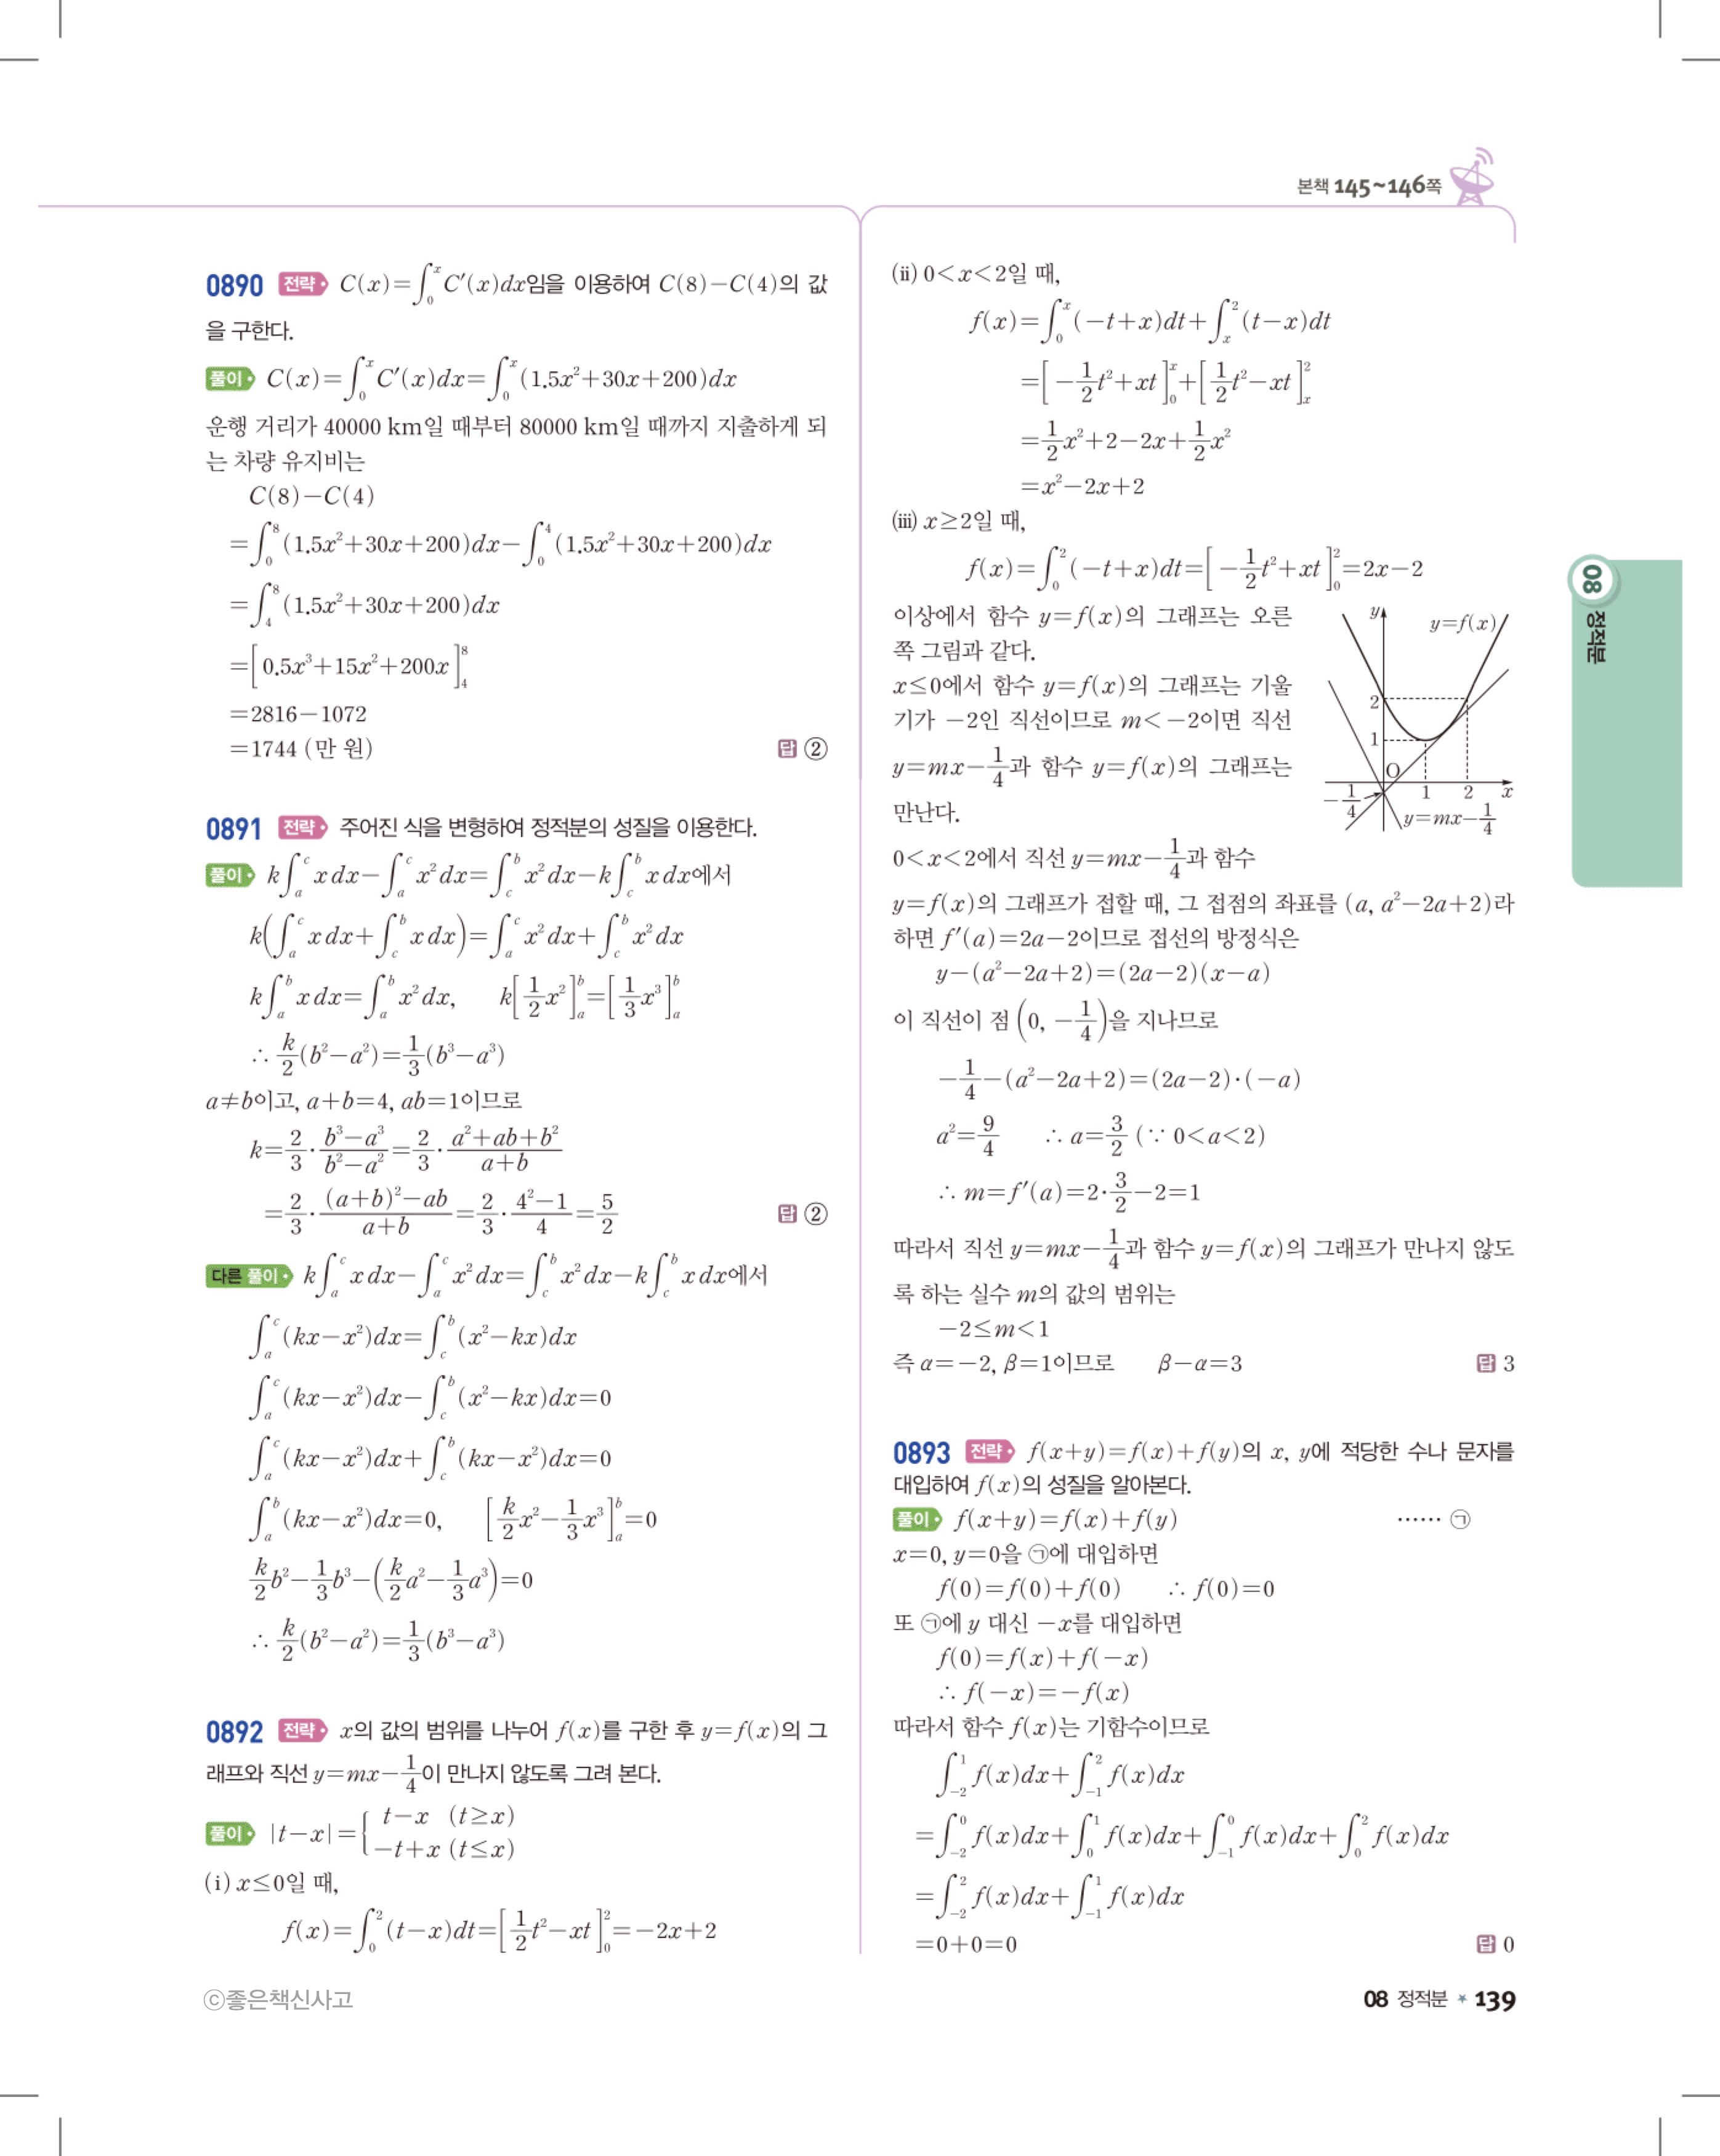 본책 145~146쪽
0890 전략 C(x)=∫₀ˣ C′(x)dx임을 이용하여 C(8)−C(4)의 값
을 구한다.
풀이 C(x)=∫₀ˣ C′(x)dx=∫₀ˣ (1.5x²+30x+200)dx
운행 거리가 40000 km일 때부터 80000 km일 때까지 지출하게 되
는 차량 유지비는
C(8)−C(4)
=∫₀⁸ (1.5x²+30x+200)dx−∫₀⁴ (1.5x²+30x+200)dx
=∫₄⁸ (1.5x²+30x+200)dx
=[0.5x³+15x²+200x]₄⁸
=2816−1072
=1744 (만 원) 답 ②
0891 전략 주어진 식을 변형하여 정적분의 성질을 이용한다.
풀이 k∫_a^c x dx−∫_a^c x² dx=∫_c^b x² dx−k∫_c^b x dx에서
k(∫_a^c x dx+∫_c^b x dx)=∫_a^c x² dx+∫_c^b x² dx
k∫_a^b x dx=∫_a^b x² dx, k[1/2 x²]_a^b=[1/3 x³]_a^b
∴ k/2(b²−a²)=1/3(b³−a³)
a≠b이고, a+b=4, ab=1이므로
k=2/3·(b³−a³)/(b²−a²)=2/3·(a²+ab+b²)/(a+b)
=2/3·((a+b)²−ab)/(a+b)=2/3·(4²−1)/4=5/2 답 ②
다른 풀이 k∫_a^c x dx−∫_a^c x² dx=∫_c^b x² dx−k∫_c^b x dx에서
∫_a^c (kx−x²)dx=∫_c^b (x²−kx)dx
∫_a^c (kx−x²)dx−∫_c^b (x²−kx)dx=0
∫_a^c (kx−x²)dx+∫_c^b (kx−x²)dx=0
∫_a^b (kx−x²)dx=0, [k/2 x²−1/3 x³]_a^b=0
k/2 b²−1/3 b³−(k/2 a²−1/3 a³)=0
∴ k/2(b²−a²)=1/3(b³−a³)
0892 전략 x의 값의 범위를 나누어 f(x)를 구한 후 y=f(x)의 그
래프와 직선 y=mx−1/4이 만나지 않도록 그려 본다.
풀이 |t−x|={ t−x (t≥x)
−t+x (t≤x)
(i) x≤0일 때,
f(x)=∫₀² (t−x)dt=[1/2 t²−xt]₀²=−2x+2
(ii) 0<x<2일 때,
f(x)=∫₀ˣ (−t+x)dt+∫ₓ² (t−x)dt
=[−1/2 t²+xt]₀ˣ+[1/2 t²−xt]ₓ²
=1/2 x²+2−2x+1/2 x²
=x²−2x+2
(iii) x≥2일 때,
f(x)=∫₀² (−t+x)dt=[−1/2 t²+xt]₀²=2x−2
이상에서 함수 y=f(x)의 그래프는 오른
쪽 그림과 같다.
x≤0에서 함수 y=f(x)의 그래프는 기울
기가 −2인 직선이므로 m<−2이면 직선
y=mx−1/4과 함수 y=f(x)의 그래프는
만난다.
y
y=f(x)
2
1
O
−1/4
1
2
x
y=mx−1/4
0<x<2에서 직선 y=mx−1/4과 함수
y=f(x)의 그래프가 접할 때, 그 접점의 좌표를 (a, a²−2a+2)라
하면 f′(a)=2a−2이므로 접선의 방정식은
y−(a²−2a+2)=(2a−2)(x−a)
이 직선이 점 (0, −1/4)을 지나므로
−1/4−(a²−2a+2)=(2a−2)·(−a)
a²=9/4 ∴ a=3/2 (∵ 0<a<2)
∴ m=f′(a)=2·3/2−2=1
따라서 직선 y=mx−1/4과 함수 y=f(x)의 그래프가 만나지 않도
록 하는 실수 m의 값의 범위는
−2≤m<1
즉 α=−2, β=1이므로 β−α=3 답 3
0893 전략 f(x+y)=f(x)+f(y)의 x, y에 적당한 수나 문자를
대입하여 f(x)의 성질을 알아본다.
풀이 f(x+y)=f(x)+f(y) …… ㉠
x=0, y=0을 ㉠에 대입하면
f(0)=f(0)+f(0) ∴ f(0)=0
또 ㉠에 y 대신 −x를 대입하면
f(0)=f(x)+f(−x)
∴ f(−x)=−f(x)
따라서 함수 f(x)는 기함수이므로
∫₋₂¹ f(x)dx+∫₋₁² f(x)dx
=∫₋₂⁰ f(x)dx+∫₀¹ f(x)dx+∫₋₁⁰ f(x)dx+∫₀² f(x)dx
=∫₋₂² f(x)dx+∫₋₁¹ f(x)dx
=0+0=0 답 0
08 정적분
ⓒ좋은책신사고
08 정적분 * 139